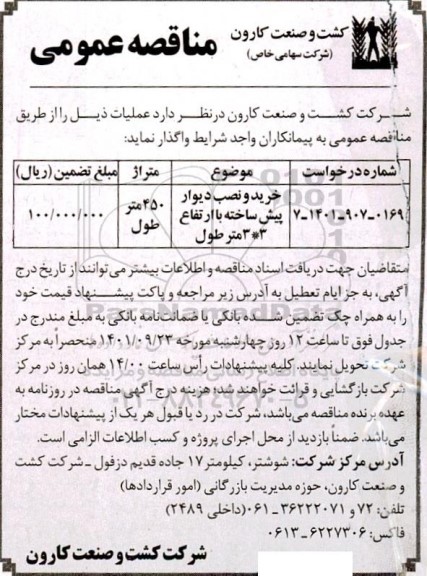 کشت و صنعت کارون
(شرکت سهامی خاص)
مناقصه عمومی
شرکت کشت و صنعت کارون در نظر دارد عملیات ذیل را از طریق
مناقصه عمومی به پیمانکاران واجد شرایط واگذار نماید:
شماره درخواست موضوع متراژ مبلغ تضمین (ریال)
۷-۱۴۰۱-۹۰۷-۰۱۶۹ خرید و نصب دیوار پیش ساخته با ارتفاع ۳*۳ متر طول ۴۵۰ متر طول ۱۰۰/۰۰۰/۰۰۰
متقاضیان جهت دریافت اسناد مناقصه و اطلاعات بیشتر می‌توانند از تاریخ درج
آگهی، به جز ایام تعطیل به آدرس زیر مراجعه و پاکت پیشنهاد قیمت خود
را به همراه چک تضمین شده بانکی یا ضمانت نامه بانکی به مبلغ مندرج در
جدول فوق تا ساعت ۱۲ روز چهارشنبه مورخه ۱۴۰۱/۰۹/۲۳ منحصراً به مرکز
شرکت تحویل نمایند. کلیه پیشنهادات رأس ساعت ۱۴/۰۰ همان روز در مرکز
شرکت بازگشایی و قرائت خواهند شد هزینه درج آگهی مناقصه در روزنامه به
عهده برنده مناقصه می‌باشد، شرکت در رد یا قبول هر یک از پیشنهادات مختار
می‌باشد. ضمناً بازدید از محل اجرای پروژه و کسب اطلاعات الزامی است.
آدرس مرکز شرکت: شوشتر، کیلومتر ۱۷ جاده قدیم دزفول - شرکت کشت
و صنعت کارون، حوزه مدیریت بازرگانی (امور قراردادها)
تلفن: ۷۲ و ۳۶۲۲۲۰۷۱-۰۶۱ (داخلی ۲۴۸۹)
فاکس: ۶۲۲۷۳۰۶-۰۶۱۳
شرکت کشت و صنعت کارون
۰۲۱-۸۸۳۴۹۶۷۰-۵